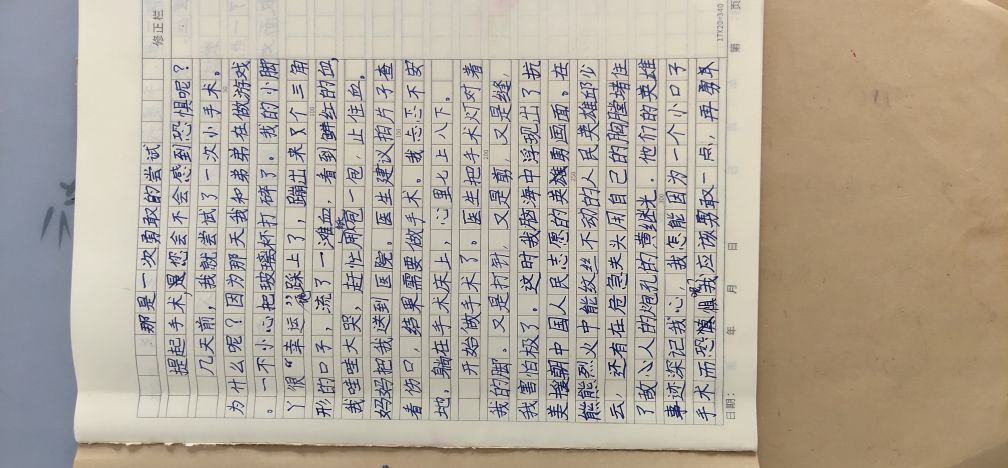 修正栏
那是一次勇敢的尝试
提起手术，是您会不会感到恐惧呢？
几天前，我就尝试了一次小手术。
为什么呢？因为那天我和弟弟在做游戏
。一不小心把玻璃杯打碎了。我的小脚
丫很“幸运”地踩上了，蹦出来个三角
形的口子，流了一滩血，看到鲜红的血，
我哇哇大哭，赶忙用一包，止住血。
妈妈把我送到医院。医生建议拍片子查
看伤口，结果需要做手术。我忐忑不安
地，躺在手术床上，心里七上八下。
开始做手术了。医生把手术灯对着
我的脚。又是打针，又是剪，又是缝，
我害怕极了。这时我脑海中浮现出了抗
美援朝中国人民志愿的英雄勇画面。在
熊熊烈火中能纹丝不动的人民英雄邱少
云，还有在危急关头用自己的胸膛堵住
了敌人的炮孔的黄继光。他们的英雄
事迹深记我心，我怎能因为一个小口子
手术而恐惧呢？我应该勇敢一点，再勇敢
日期： 年 月 日 第 页
17X20=340
100
200
300